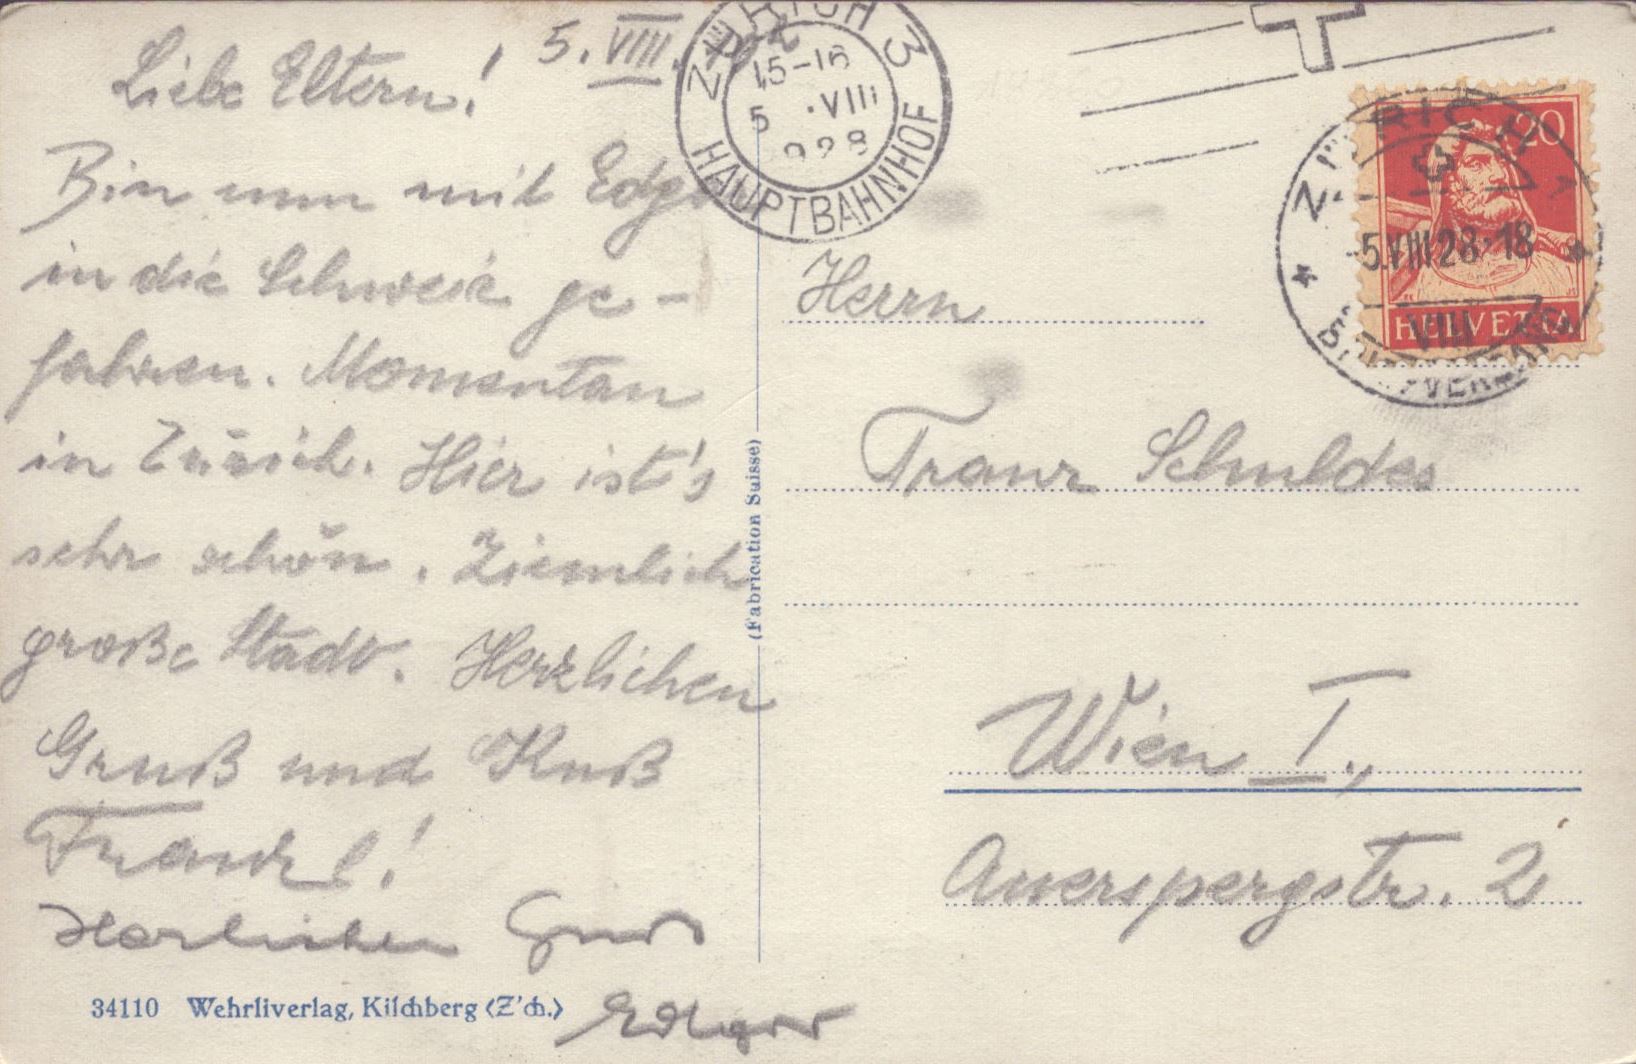 Liebe Eltern! 5. VIII.
Bin nun mit Edgar
in die Schweiz ge-
fahren. Momentan
in Zürich. Hier ist's
sehr schön. Ziemlich
große Stadt. Herzlichen
Gruß und Kuß
Franzl!
Herzlichen Gruß
Edgar
34110 Wehrliverlag, Kilchberg (Z'ch.)
(Fabrication Suisse)
ZÜRICH 3
15-16
5.VIII
1928
HAUPTBAHNHOF
20
ZÜRICH
-5.VIII28-18
VIII
HELVETIA
Herrn
Franz Schuldes
Wien I.,
Auerspergstr. 2